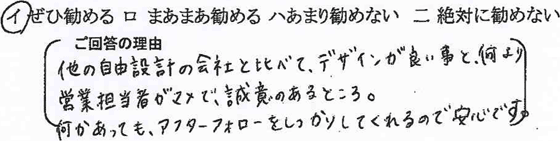 イ ぜひ勧める ロ まあまあ勧める ハ あまり勧めない 二 絶対に勧めない
ご回答の理由
他の自由設計の会社と比べて、デザインが良い事と、何より
営業担当者がマメで、誠意のあるところ。
何かあっても、アフターフォローをしっかりしてくれるので安心です。